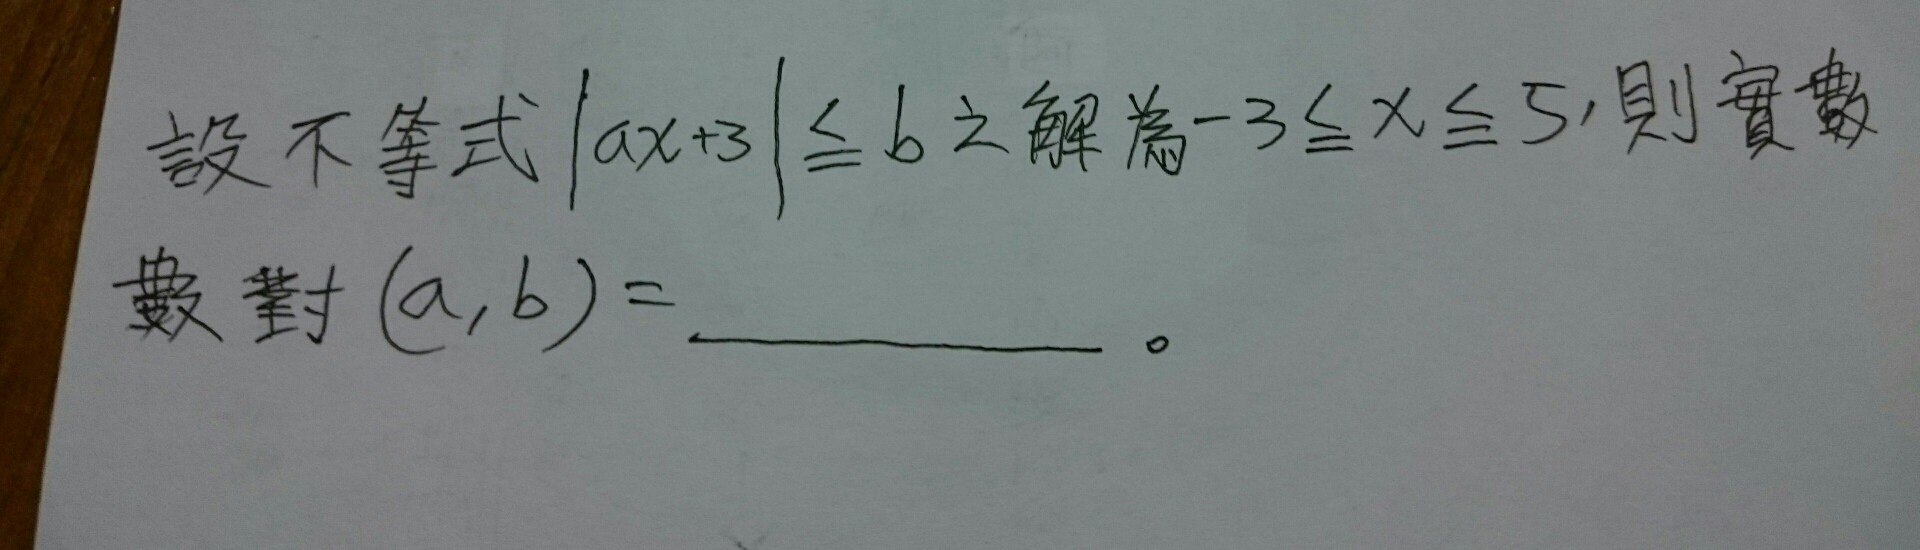 設不等式|ax+3|≦b之解為-3≦x≦5,則實數
數對(a,b)=________。